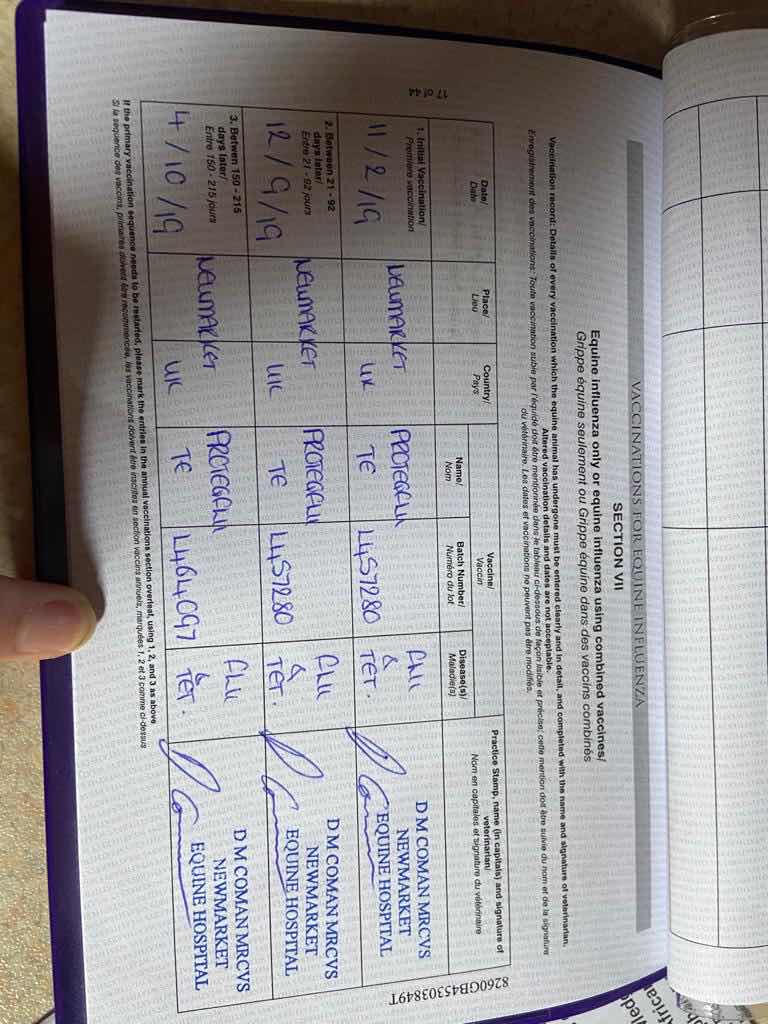 VACCINATIONS FOR EQUINE INFLUENZA
SECTION VII
Equine influenza only or equine influenza using combined vaccines/
Grippe équine seulement ou Grippe équine dans des vaccins combinés
Vaccination record: Details of every vaccination which the equine animal has undergone must be entered clearly and in detail, and completed with the name and signature of veterinarian.
Altered vaccination details and dates are not acceptable.
Enregistrement des vaccinations: Toute vaccination subie par l'équidé doit être mentionnée dans le tableau ci-dessous de façon lisible et précise; cette mention doit être suivie du nom et de la signature
du vétérinaire. Les dates et vaccinations ne peuvent pas être modifiés.
Date/
Date
Place/
Lieu
Country/
Pays
Vaccine/
Vaccin
Name/
Nom
Batch Number/
Numéro du lot
Disease(s)/
Maladie(s)
Practice Stamp, name (in capitals) and signature of
veterinarian/
Nom en capitales et signature du vétérinaire
1. Initial Vaccination/
Premiere vaccination
11/2/19
NEWMARKET
UK
PROTEQFLU
TE
L457280
FLU
&
TET.
D M COMAN MRCVS
NEWMARKET
EQUINE HOSPITAL
2. Between 21 - 92
days later/
Entre 21 - 92 jours
12/9/19
NEWMARKET
UK
PROTEQFLU
TE
L457280
FLU
&
TET.
D M COMAN MRCVS
NEWMARKET
EQUINE HOSPITAL
3. Betwen 150 - 215
days later/
Entre 150 - 215 jours
4/10/19
NEWMARKET
UK
PROTEQFLU
TE
L464097
FLU
&
TET.
D M COMAN MRCVS
NEWMARKET
EQUINE HOSPITAL
If the primary vaccination sequence needs to be restarted, please mark the entries in the annual vaccinations section overleaf, using 1, 2, and 3 as above
Si la sequence des vaccins, primaires doivent être recommencée, les vaccinations doivent être inscrites en section vaccins annuels, marquées 1, 2 et 3 comme ci-dessus
17 of 44
8260GB45303849T